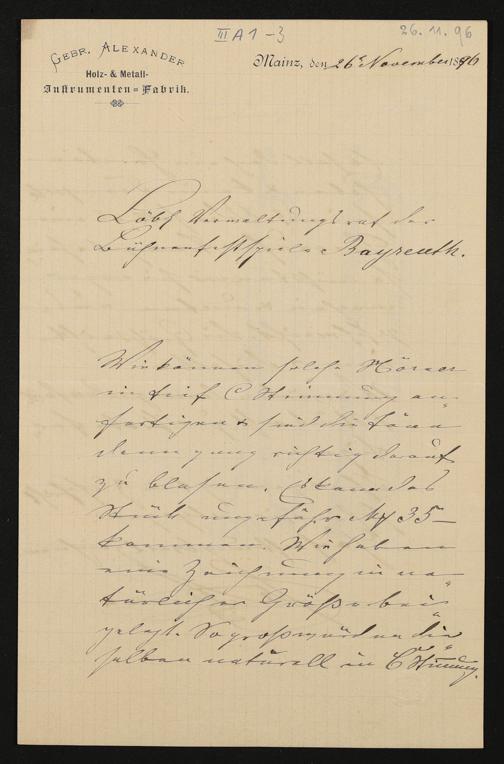 III A 1-3
26.11.96
GEBR. ALEXANDER
Holz- & Metall-
Instrumenten-Fabrik.
Mainz, den 26t November 1896
Löbl. Verwaltungsrat der
Bühnenfestspiele Bayreuth.
Wir können solche Hörner
in tief C Stimmung an-
fertigen & sind die Töne
dann ganz richtig darauf
zu blasen. Es kann das
Stück ungefähr Mk 35-
kommen. Wir haben
eine Zeichnung in na-
türlicher Größe bei-
gelegt. So groß würden die-
selben naturell in C Stimmung.